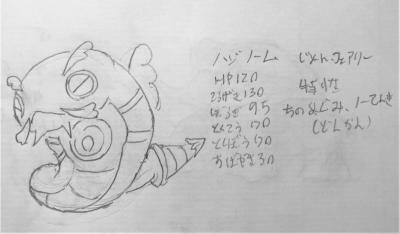 ハジノーム　じめん、フェアリー
HP120
こうげき130
ぼうぎ 95
とくこう 70
とくぼう 70
すばやさ 30
特性
ちのめぐみ、ノーてんき
(どんかん)